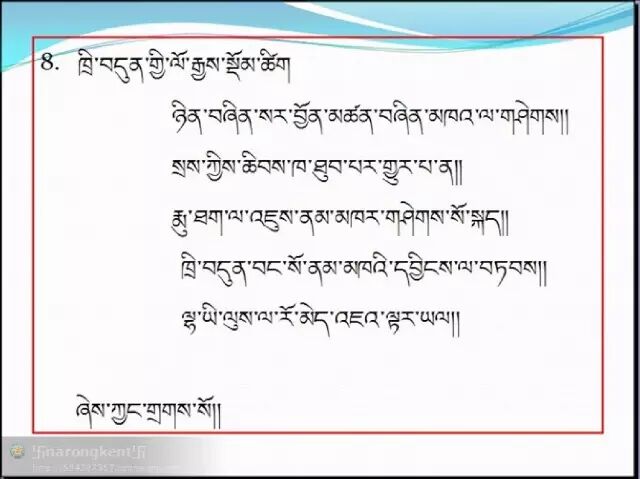 8. ཁྲི་བདུན་གྱི་ལོ་རྒྱས་སྡོམ་ཚིག
ཉིན་བཞིན་སར་བྱོན་མཚན་བཞིན་མཁའ་ལ་གཤེགས།།
སྲས་ཀྱིས་ཆིབས་ཁ་ཐུབ་པར་གྱུར་པ་ན།།
རྨུ་ཐག་ལ་འཇུས་ནམ་མཁར་གཤེགས་སོ་སྐད།།
ཁྲི་བདུན་བང་སོ་ནམ་མཁའི་དབྱིངས་ལ་བཏབས།།
ལྷ་ཡི་ལུས་ལ་རོ་མེད་འཇའ་ལྟར་ཡལ།།
ཞེས་ཀྱང་གྲགས་སོ།།
卐narongkent卐